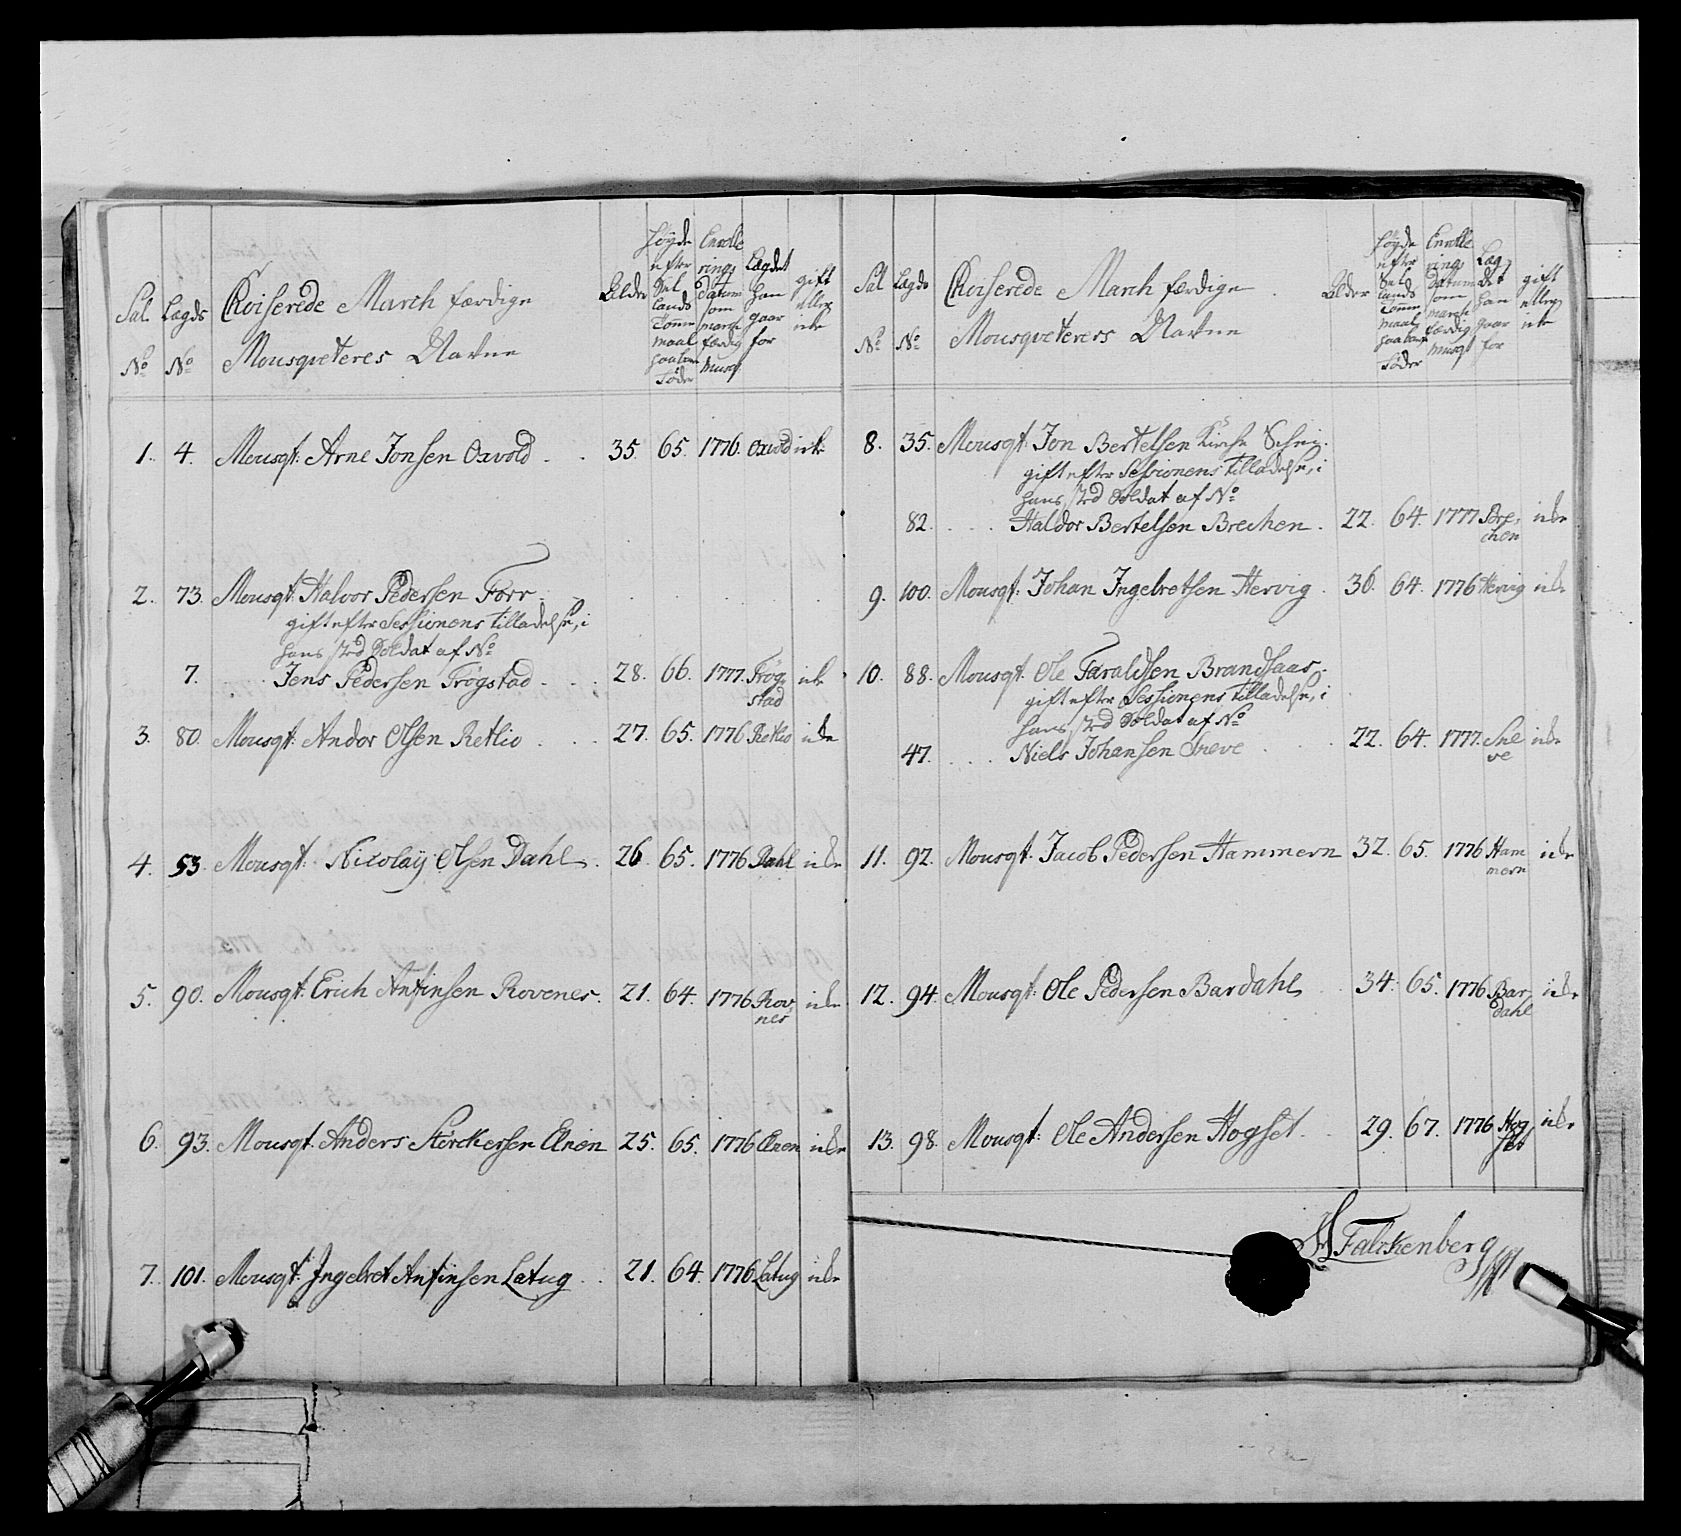 Sal. Lagds
No No
Mousqveteres Nafne
Alder
Høyde efter Siel lands Tomme maal
Enrolle rings datum som march færdig Musqt
Lægdet han gaar for
gift eller icke
1. 4. Mousqt: Arne Jonsen Oxvold 35. 65. 1776. Oxvold icke
2. 73. Mousqt: Halvor Pedersen Forr
gift efter Sessionens tilladelse, i
hans sted Soldat af No
7. Jens Pedersen Frøgstad 28. 66. 1777. Frøg stad icke
3. 80. Mousqt: Andor Olsen Retlio 27. 65. 1776 Retlio icke
4. 53. Mousqt: Nicolaÿ Olsen Dahl 26 65. 1776 Dahl icke
5. 90. Mousqt: Erich Antinsen Rovenes 21. 64. 1776 Rov nes icke
6. 93. Mousqt. Anders Storckersen Elnen 25. 65. 1776 Elnen icke
7. 101. Mousqt: Ingelret Antinsen Latug 21. 64. 1776 Latug icke
Sal Lagds
No No
March færdige
Mousqveterers Nafne
Alder
Høyde efter Siel lands Tomme maal
Enrolle rings datum som march færdig musqt
Læg det han gaar for
gift eller icke
8. 35. Mousqt: Jon Bertelsen
gift efter Sessionens tilladelse, i
hans sted Soldat af No
82. Haldor Bertelsen Brechen 22. 64. 1777 Bre chen icke
9. 100. Mousqt: Johan Ingelretsen Hervig 36. 64. 1776 Hervig icke
10. 88. Mousqt. Ole Taraldsen Brandsaas
gift efter Sessionens tilladelse, i
hans sted Soldat af No
47. Niels Johansen Sneve 22. 64. 1777. Sne ve icke
11. 92. Mousqt. Jacob Pedersen Hammern 32. 65. 1776 Ham mern icke
12. 94. Mousqt: Ole Pedersen Bardahl 34. 65. 1776 Bar dahl icke
13. 98. Mousqt: Ole Andersen Hogset 29. 67. 1776 Hog set icke
Falckenberg